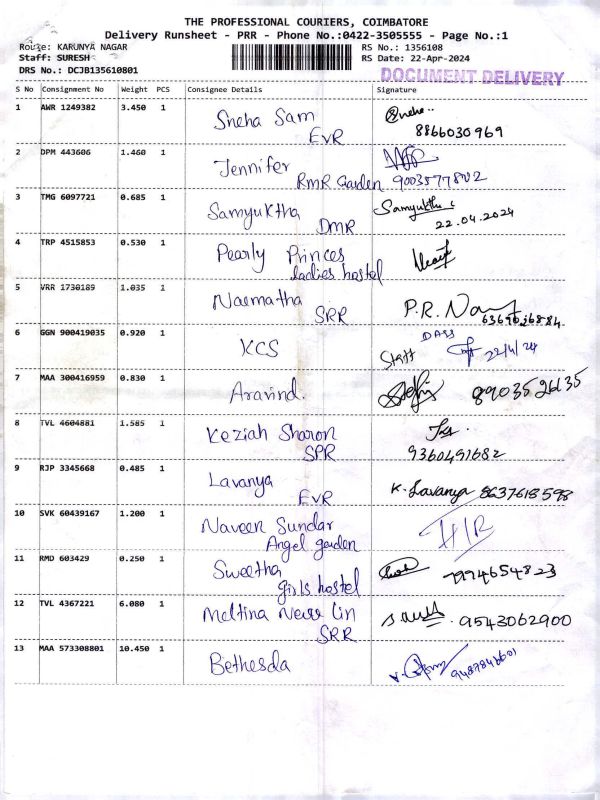 THE PROFESSIONAL COURIERS, COIMBATORE
Delivery Runsheet - PRR - Phone No.:0422-3505555 - Page No.:1
Route: KARUNYA NAGAR RS No.: 1356108
Staff: SURESH RS Date: 22-Apr-2024
DRS No.: DCJB135610801 DOCUMENT DELIVERY
S No Consignment No Weight PCS Consignee Details Signature
1 AWR 1249382 3.450 1 Sneha Sam Sneha
EVR 8866030969
2 DPM 443606 1.460 1 Jennifer
RMR Garden 9003577802
3 TMG 6097721 0.685 1 Samyuktha Samyuktha
DMR 22.04.2024
4 TRP 4515853 0.530 1 Pearly Princes
Ladies hostel
5 VRR 1730189 1.035 1 Naematha P.R.
SRR
6 GGN 900419035 0.920 1 KCS DASS
Staff 22/4/24
7 MAA 300416959 0.830 1 Aravind. 8903526135
8 TVL 4604881 1.585 1 Keziah Sharon
SPR 9360491682
9 RJP 3345668 0.485 1 Lavanya K. Lavanya 8637618598
EVR
10 SVK 60439167 1.200 1 Naveen Sundar
Angel garden
11 RMD 603429 0.250 1 Sweetha 7994654823
girls hostel
12 TVL 4367221 6.080 1 Meltina 9543062900
SRR
13 MAA 573308801 10.450 1 Bethesda 9487846601